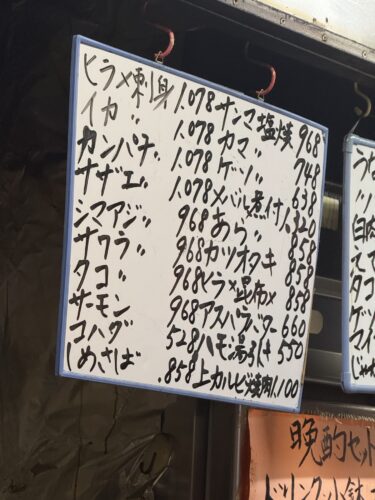 ヒラメ刺身 1.078
イカ 〃 1.078
カンパチ 〃 1.078
サザエ 〃 1.078
シマアジ 〃 968
サワラ 〃 968
タコ 〃 968
サーモン 968
コハダ 528
しめさば .858
サンマ塩焼 968
カマ 〃 748
ゲソ 〃 638
メバル煮付 1.320
あら 〃 858
カツオタタキ 858
ヒラメ昆布〆 858
アスパラバター 660
ハモ湯引き 550
上カルビ焼肉 1.100
晩酌セット
ドリンク+小鉢